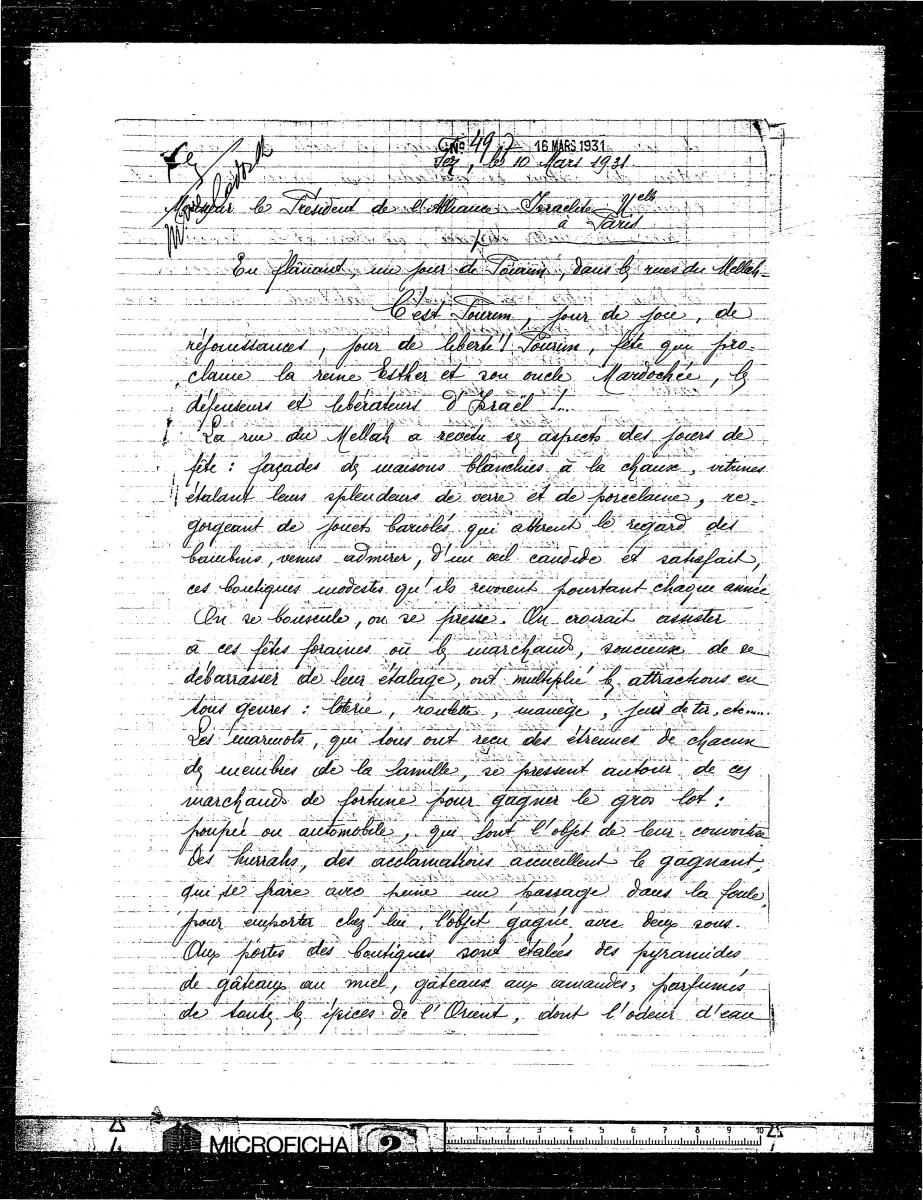 Fez
No 497 16 MARS 1931
Fez, le 10 Mars 1931.
Monsieur le Président de l'Alliance Israelite Ulle
à Paris
En flânant, un jour de Pourim, dans les rues du Mellah-
C'est Pourim, jour de joie, de
réjouissances, jour de liberté! Pourim, fête que pro-
clame la reine Esther et son oncle Mardochée, les
défenseurs et libérateurs d'Israël !...
La rue du Mellah a revêtu ses aspects des jours de
fête : façades des maisons blanchies à la chaux, vitrines
étalant leurs splendeurs de verre et de porcelaine, re-
gorgeant de jouets bariolés qui attirent le regard des
bambins, venus admirer, d'un œil candide et satisfait,
ces boutiques modestes qu'ils revoient pourtant chaque année
On se bouscule, on se presse. On croirait assister
à ces fêtes foraines où les marchands, soucieux de se
débarrasser de leur étalage, ont multiplié les attractions en
tous genres : loterie, roulette, manège, jeux de tir, etc.....
Les marmots, qui tous ont reçu des étrennes de chacun
des membres de la famille, se pressent autour de ces
marchands de fortune pour gagner le gros lot :
poupée ou automobile, qui font l'objet de leur convoitise
Des hurrahs, des acclamations accueillent le gagnant,
qui se fraie avec peine un passage dans la foule,
pour emporter chez lui, l'objet gagné avec deux sous.
Aux portes des boutiques sont étalées des pyramides
de gâteaux au miel, gâteaux aux amandes, parfumés
de toutes les épices de l'Orient, dont l'odeur d'eau
MICROFICHA 2
1 2 3 4 5 6 7 8 9 10